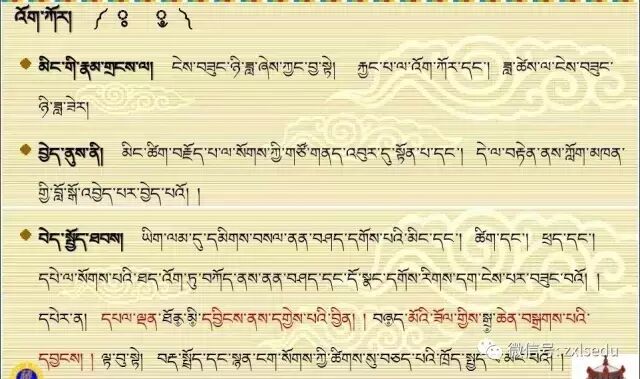 འོག་ཀོར། ༼ ༵ ༷ ༽
མིང་གི་རྣམ་གྲངས་ལ། ངེས་བཟུང་ཉི་ཟླ་ཞེས་ཀྱང་བྱ་སྟེ། རྐྱང་པ་ལ་འོག་ཀོར་དང་། ཟླ་ཚེས་ལ་ངེས་བཟུང་
ཉི་ཟླ་ཟེར།
བྱེད་ནུས་ནི། མིང་ཚིག་བརྗོད་པ་ལ་སོགས་ཀྱི་གཙོ་གནད་འབུར་དུ་སྟོན་པ་དང་། དེ་ལ་བརྟེན་ནས་ཀློག་མཁན་
གྱི་བློ་སྒོ་འབྱེད་པར་བྱེད་པའོ། །
བེད་སྤྱོད་ཐབས། ཡིག་ལམ་དུ་དམིགས་བསལ་ནན་བཤད་དགོས་པའི་མིང་དང་། ཚིག་དང་། ཕྲད་དང་།
དཔེ་ལ་སོགས་པའི་ཐད་འོག་ཏུ་བཀོད་ནས་ནན་བཤད་དང་དོ་སྣང་དགོས་རིགས་དག་ངེས་པར་བཟུང་བའོ། །
དཔེར་ན། དཔལ་ལྡན་ དབྱིངས་ནས་དགྱེས་པའི་བྱིན། །བཞད་ མོའི་ཟོལ་གྱིས་ ཆེན་བསྒྲགས་པའི་
དབྱངས། །ལྟ་བུ་སྟེ། བརྡ་སྤྲོད་དང་སྙན་ངག་སོགས་ཀྱི་ཚིགས་སུ་བཅད་པའི་ཁྲོད་སྤྱད་ མང་བའོ། །
微信号: zxlsedu